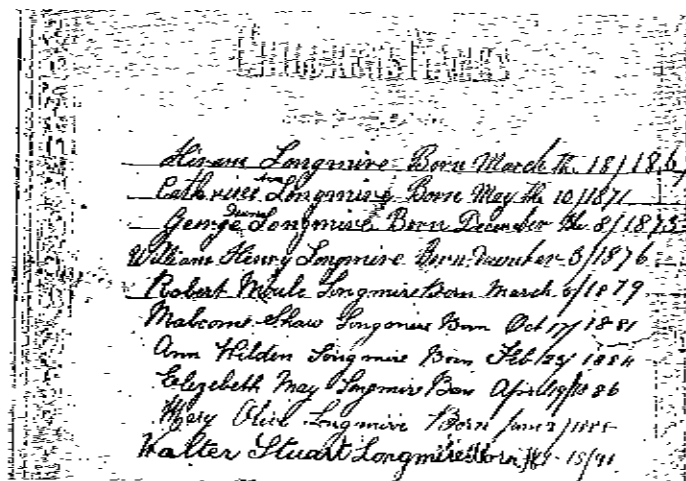 CHILDREN'S NAMES
Hiram Longmire Born March the 18/186
Cathrine Ann Longmire Born May the 10/1871
George Longmire Born December the 8/1873
William Henry Longmire Born December 3/1876
Robert Moule Longmire Born March 6/1879
Malcome Shaw Longmire Born Oct 17/1881
Ann Hilden Longmire Born Feb 24/1884
Elizebeth May Longmire Born April 19/1886
Mary Olive Longmire Born June 2/188
Walter Stuart Longmire Born 15/91